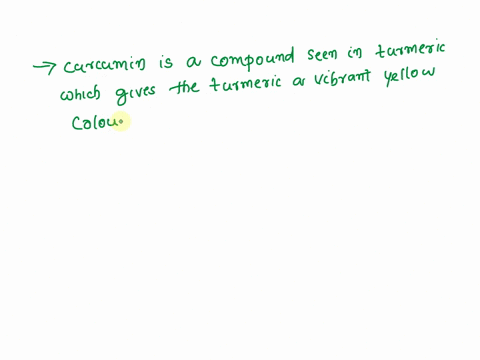 → Curcumin is a compound seen in turmeric
which gives the turmeric a vibrant yellow
Colou